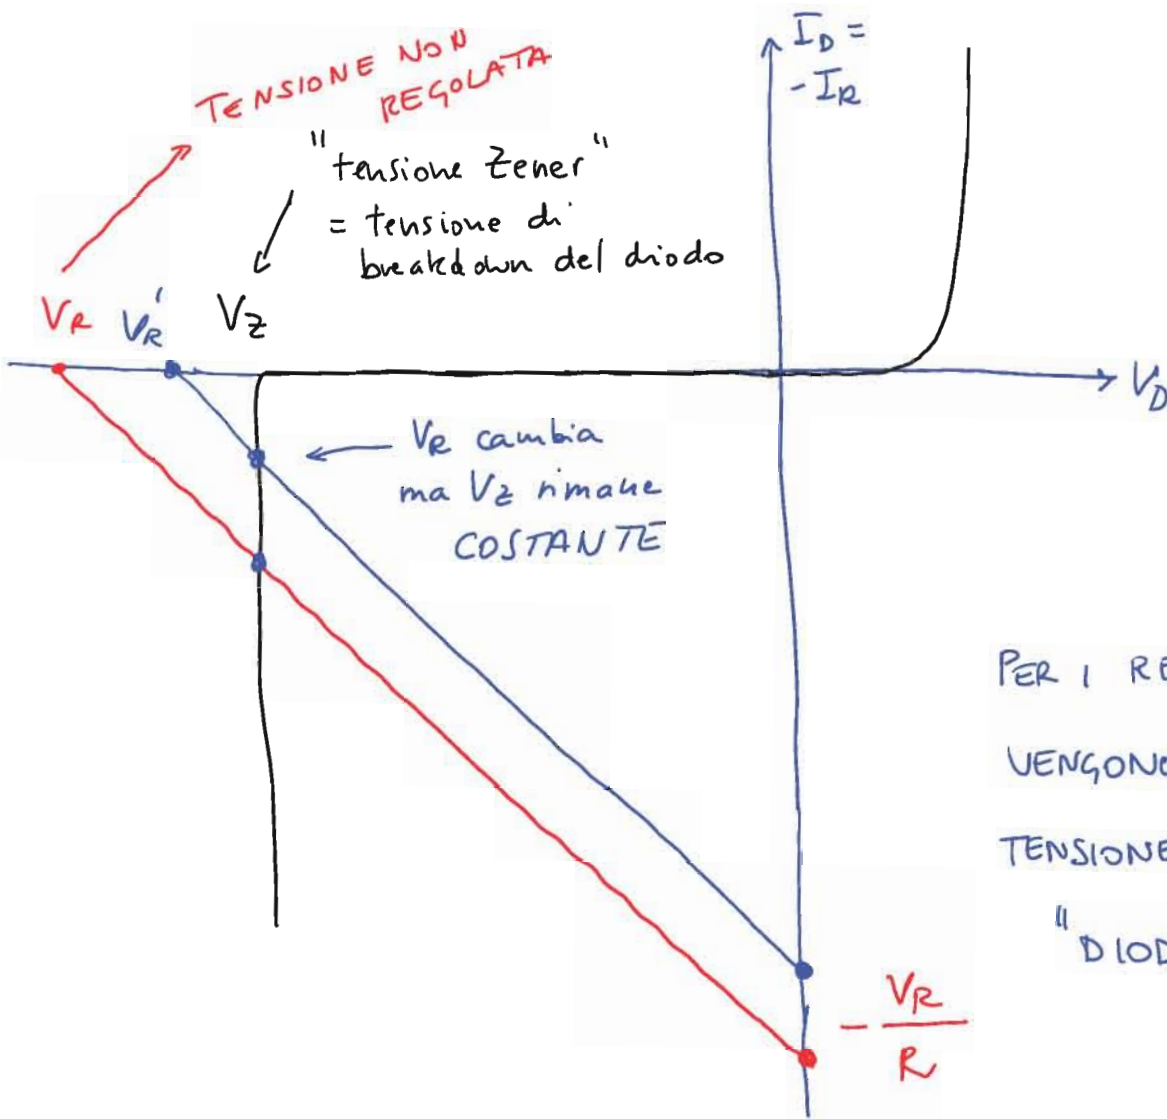 TENSIONE NON
REGOLATA
"tensione Zener"
= tensione di
breakdown del diodo
I_D =
- I_R
V_R V_R' V_Z
V_D
V_R cambia
ma V_Z rimane
COSTANTE
PER I RE
VENGONO
TENSIONE
"DIOD
- V_R
R